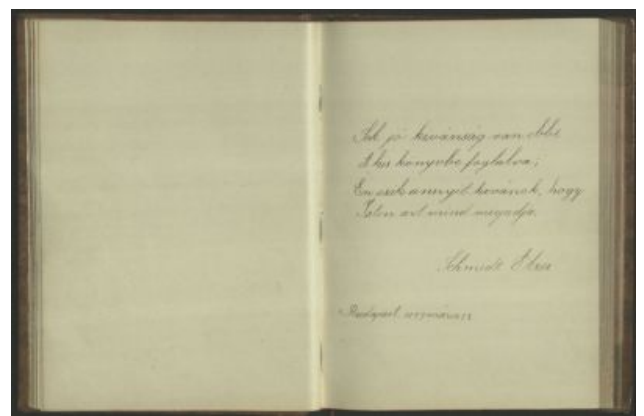 Sok jó kivánság van ebbe
A kis könyvbe foglalva;
Én csak annyit kivánok, hogy
Isten azt mind megadja.
Schmidt Elza
Budapest